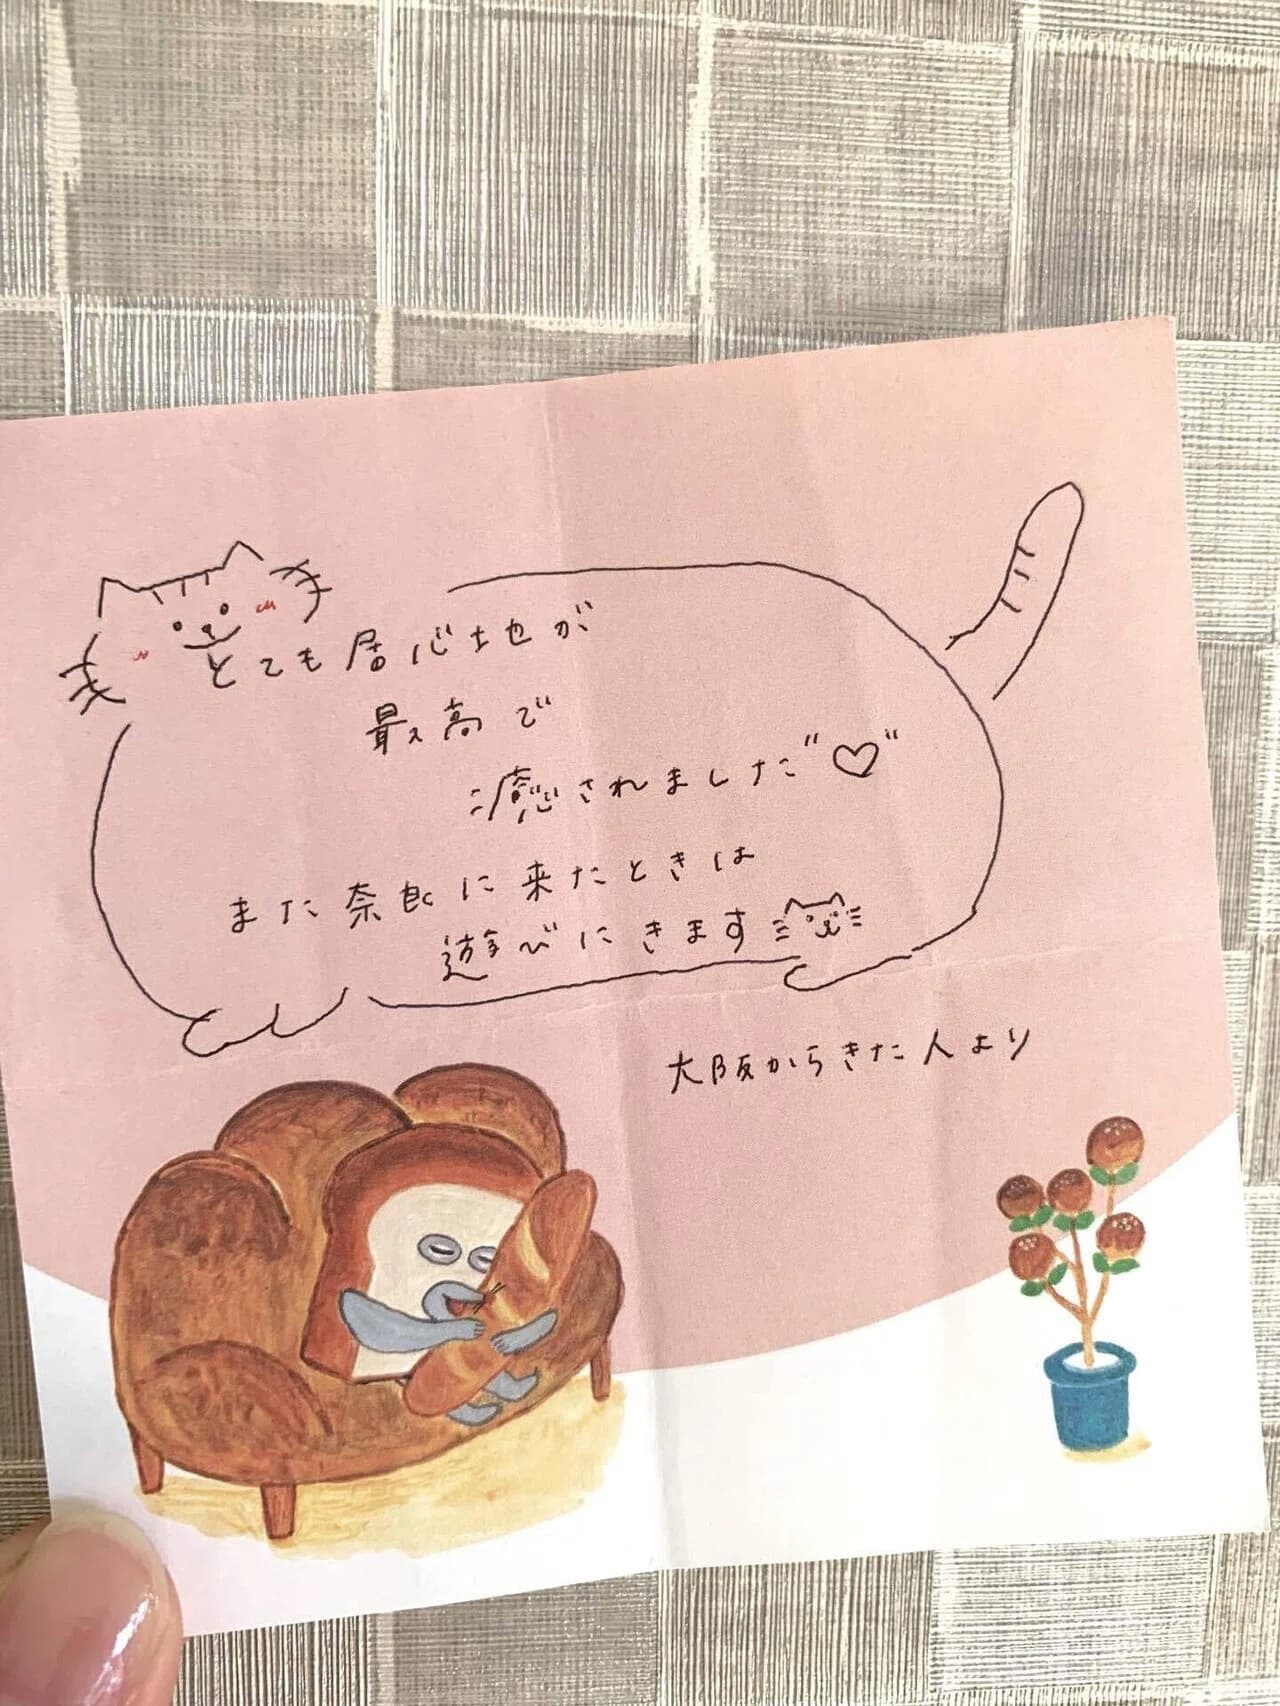 とても居心地が
最高で
癒されました"♡"
また奈良に来たときは
遊びにきます
大阪からきた人より